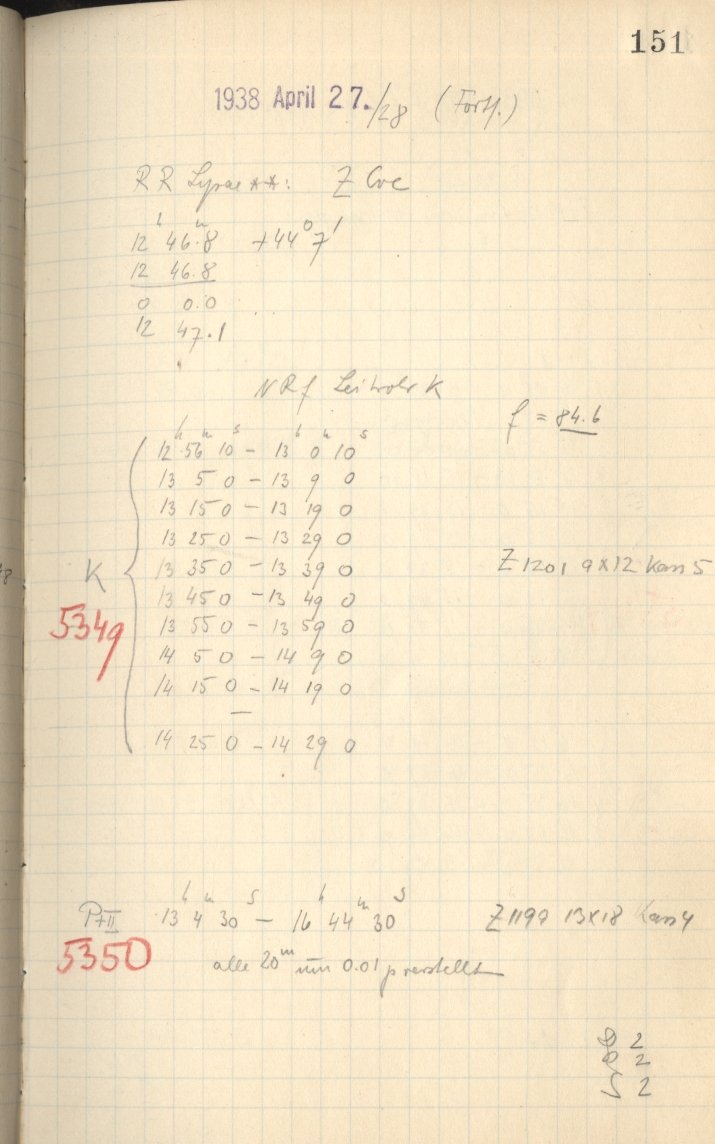 151
1938 April 27./28 (Forts.)
RR Lyrae **: Z CVc
12h 46m.8 +44° 7'
12 46.8
0 0.0
12 47.1
NRf Leitrohr K
f = 84.6
12h 56m 10s – 13h 0m 10s
13 5 0 – 13 9 0
13 15 0 – 13 19 0
13 25 0 – 13 29 0
13 35 0 – 13 39 0
Z1201 9x12 Kass 5
K
13 45 0 – 13 49 0
5349
13 55 0 – 13 59 0
14 5 0 – 14 9 0
14 15 0 – 14 19 0
–
14 25 0 – 14 29 0
13h 4m 30s – 16h 44m 30s
Z1199 13x18 Kass 4
5350
alle 20m um 0.01 p verstellt
2
2
S 2